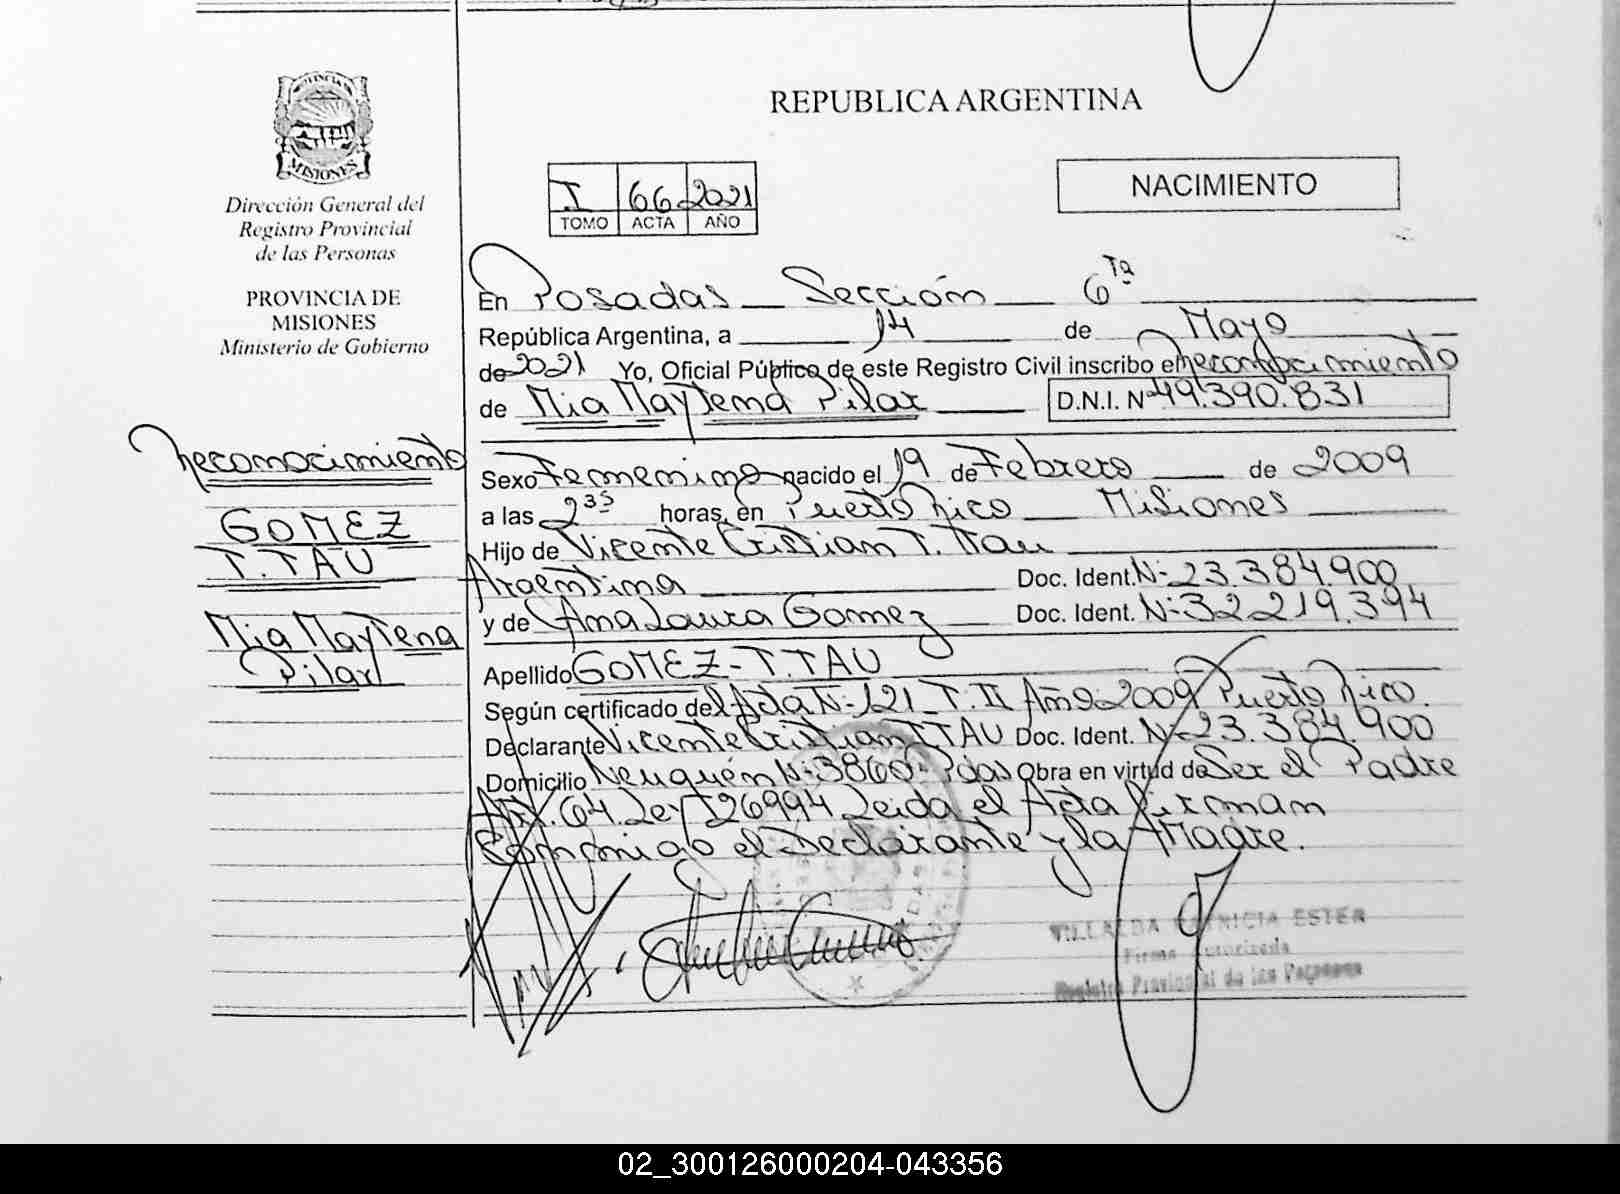 REPUBLICA ARGENTINA
PROVINCIA DE
MISIONES
Dirección General del
Registro Provincial
de las Personas
PROVINCIA DE
MISIONES
Ministerio de Gobierno
NACIMIENTO
I 66 2021
TOMO ACTA AÑO
En Posadas Sección 6ta
República Argentina, a 14 de Mayo
de 2021 Yo, Oficial Público de este Registro Civil inscribo el reconocimiento
de Mia Maytena Pilar D.N.I. Nº 49.390.831
Reconocimiento
GOMEZ
T.TAU
Mia Maytena
Pilar
Sexo Femenino nacido el 19 de Febrero de 2009
a las 2 35 horas, en Puerto Rico Misiones
Hijo de Vicente Cristian T. Tau
Argentina Doc. Ident. Nº 23.384.900
y de Ana Laura Gomez Doc. Ident. Nº 32.219.394
Apellido GOMEZ - T.TAU
Según certificado del Acta Nº 121 T. II Año 2009 Puerto Rico.
Declarante Vicente Cristian T.TAU Doc. Ident. Nº 23.384.900
Domicilio Neuquén Nº 3860 - Pdas Obra en virtud de Ser el Padre
Art. 64. Ley 26994 Leida el Acta Firman
Conmigo el Declarante y la Madre.
VILLALBA PATRICIA ESTER
Firma Autorizada
Registro Provincial de las Personas
02_300126000204-043356